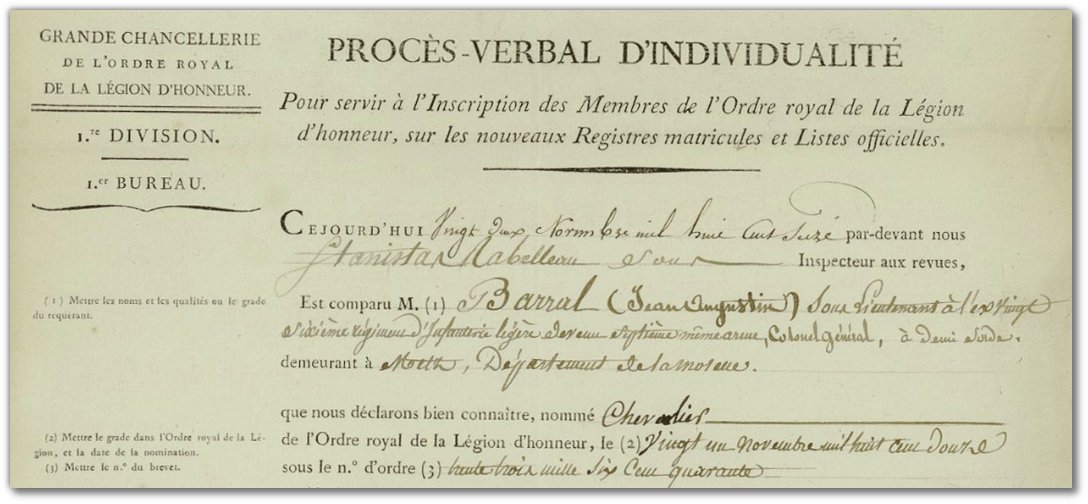 GRANDE CHANCELLERIE
DE L'ORDRE ROYAL
DE LA LÉGION D'HONNEUR.
1.re DIVISION.
1.er BUREAU.
PROCÈS-VERBAL D'INDIVIDUALITÉ
Pour servir à l'Inscription des Membres de l'Ordre royal de la Légion
d'honneur, sur les nouveaux Registres matricules et Listes officielles.
CEJOURD'HUI Vingt deux Novembre mil huit Cent Seize par-devant nous
Stanislas Sous Inspecteur aux revues,
(1) Mettre les noms et les qualités ou le grade
du requérant.
Est comparu M. (1) Barral (Jean Augustin) Sous Lieutenant à l'ex Vingt
Sixième régiment d'Infanterie légère devenu Septième même arme, Colonel général, à demi Solde.
demeurant à Metz, Département de la moselle.
que nous déclarons bien connaître, nommé Chevalier
(2) Mettre le grade dans l'Ordre royal de la Lé-
gion, et la date de la nomination.
(3) Mettre le n.° du brevet.
de l'Ordre royal de la Légion d'honneur, le (2) Vingt un novembre mil huit cent douze
sous le n.° d'ordre (3) trente trois mille Six Cent quarante